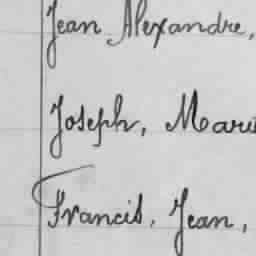 Jean Alexandre,
Joseph, Mari
Francis, Jean,